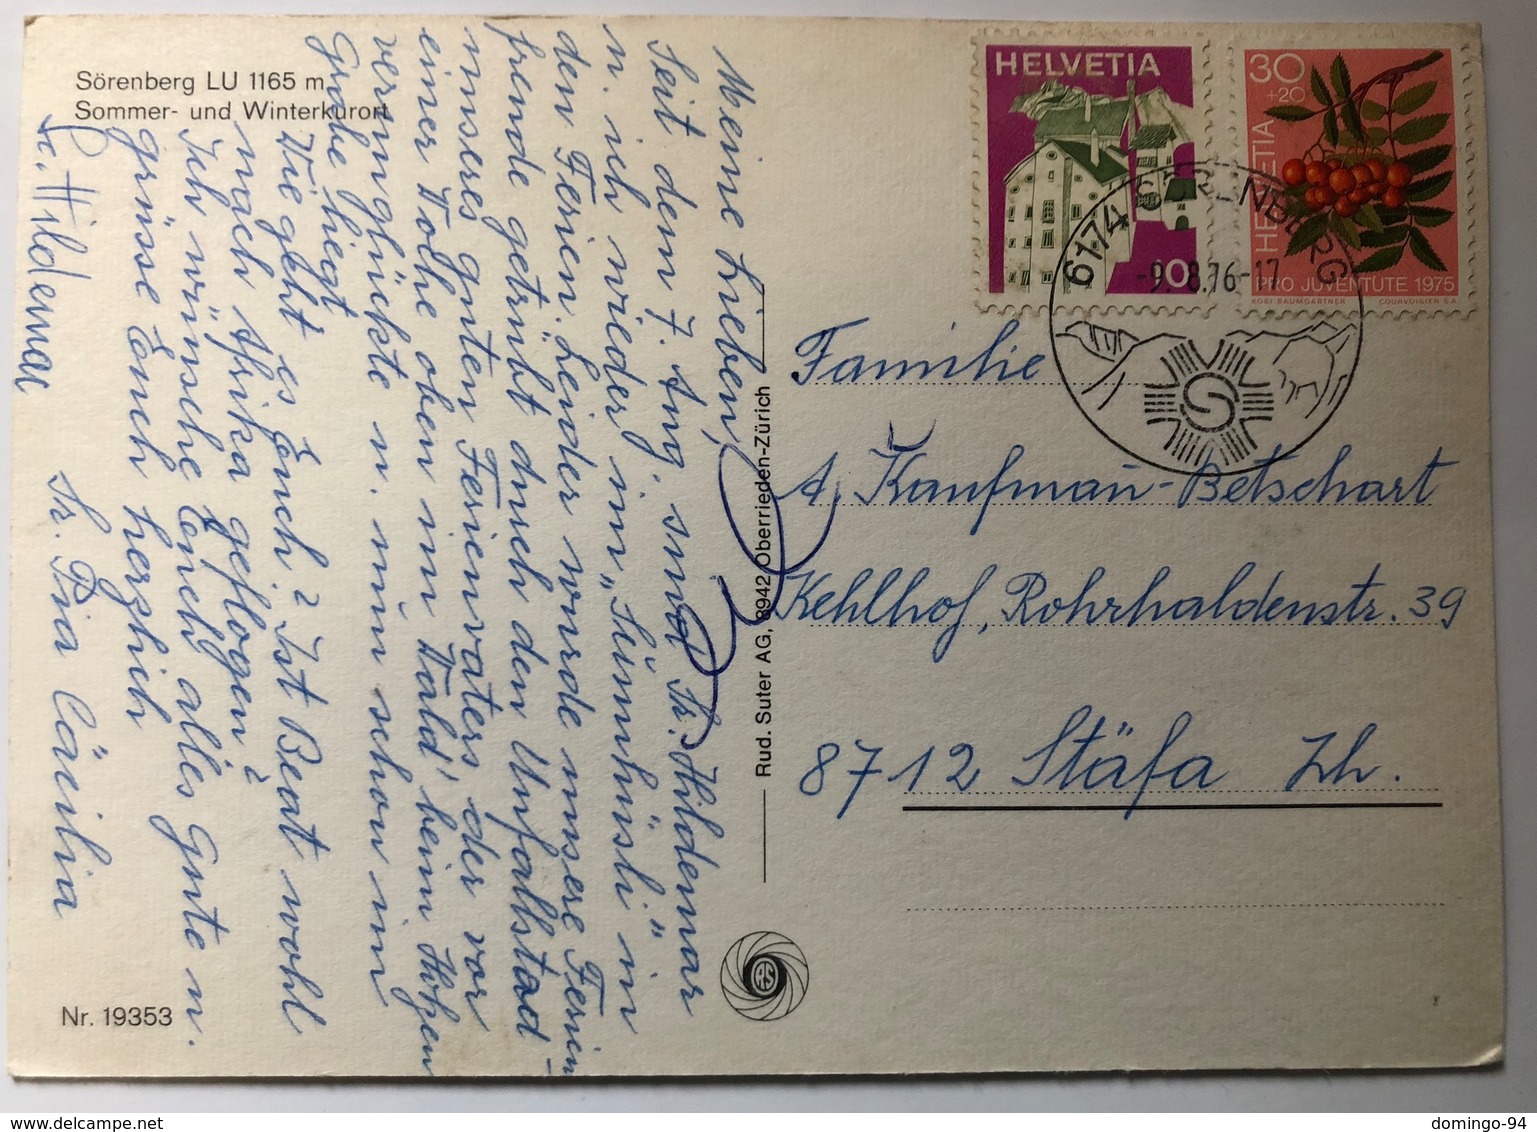 Sörenberg LU 1165 m
Sommer- und Winterkurort
Meine Lieben,
Seit dem 7. Aug. sind Sr. Hildemar
u. ich wieder im „Sunnhüsli" in
den Ferien. Leider wurde unsere Ferien-
freude getrübt durch den Unfallstod
unseres guten Ferienvaters der vor
einer Woche oben im Wald beim Holzen
verunglückte u. nun schon im
Grabe liegt.
Wie geht es Euch? Ist Beat wohl
nach Afrika geflogen?
Ich wünsche Euch alles Gute u.
grüsse Euch herzlich
Sr. Pia Cäcilia
Sr. Hildemar
Nr. 19353
Rud. Suter AG, 8942 Oberrieden-Zürich
HELVETIA
10
30
+20
HELVETIA
PRO JUVENTUTE 1975
KOBI BAUMGARTNER COURVOISIER S.A.
6174 SÖRENBERG
-9.-8.76-17
Familie
A. Kaufmann-Betschart
Kehlhof, Rohrhaldenstr. 39
8712 Stäfa Zh.
domingo-94